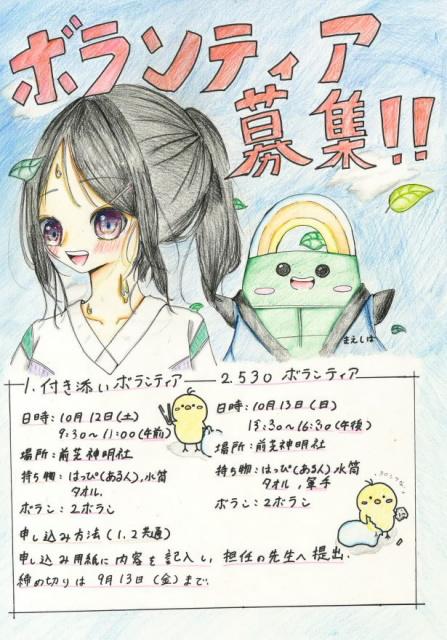 ボランティア
募集!!
まえしば
1.付き添いボランティア
日時:10月12日(土)
9:30〜11:00(午前)
場所:前芝神明社
持ち物:はっぴ(あるん),水筒
タオル.
ボラ:2ボラ
2.530 ボランティア
日時:10月13日(日)
15:30〜16:30(午後)
場所:前芝神明社
持ち物:はっぴ(あるん)水筒
タオル,軍手
ボラ:2ボラ
申し込み方法(1.2共通)
申し込み用紙に内容を記入し,担任の先生へ提出.
締め切りは9月13日(金)まで.